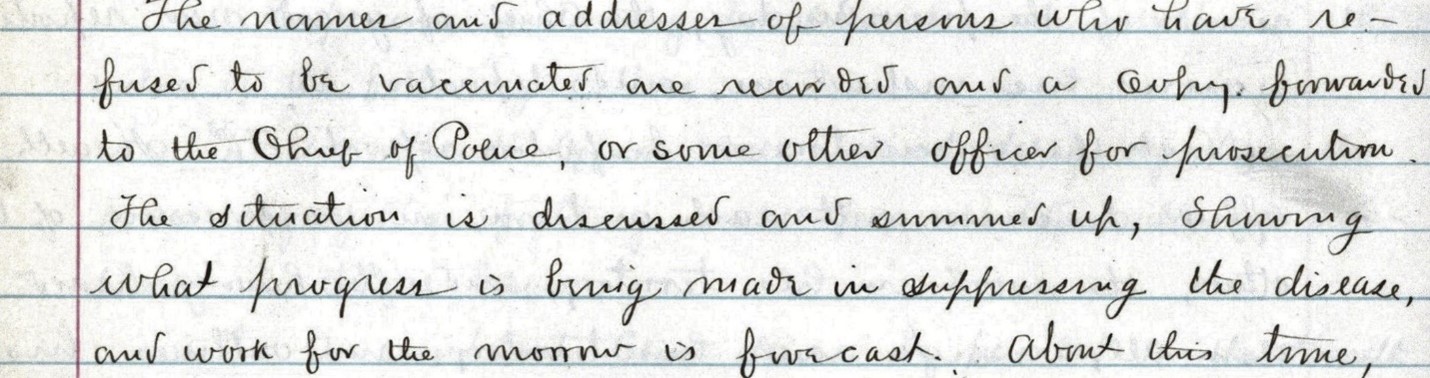 The names and addresses of persons who have re-
fused to be vaccinated are recorded and a Copy. forwarded
to the Chief of Police, or some other officer for prosecution.
The situation is discussed and summed up, Showing
what progress is being made in suppressing the disease,
and work for the morrow is forecast. About this time,